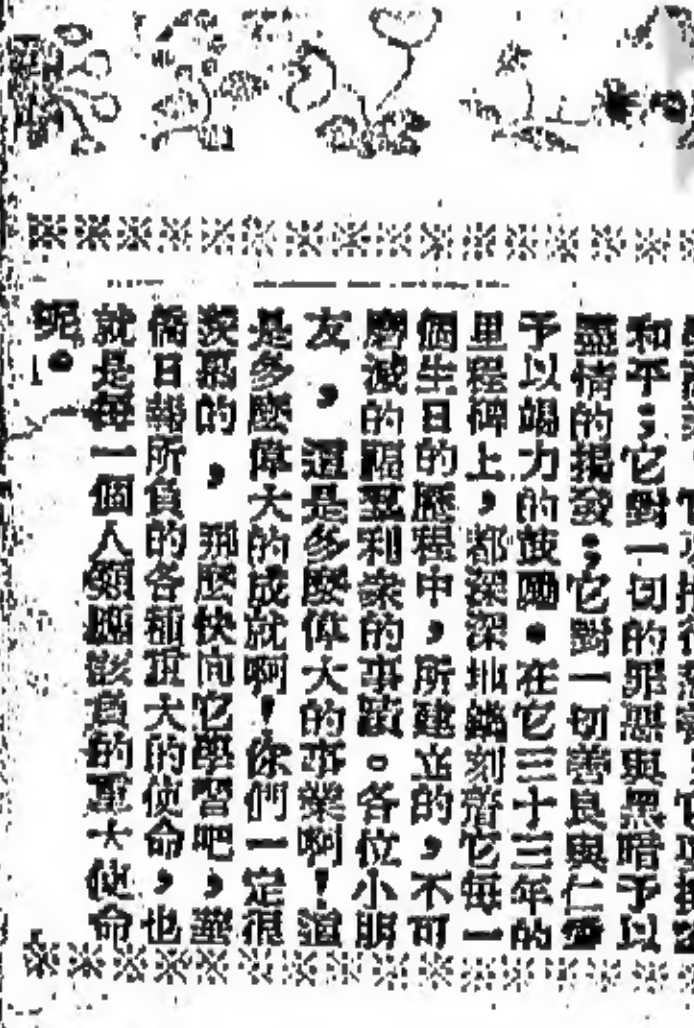 和平；它對一切的罪惡與黑暗予以
盡情的揭發；它對一切善良與仁愛
予以竭力的鼓勵。在它三十三年的
里程碑上，都深深地鐫刻着它每一
個生日的歷程中，所建立的，不可
磨滅的福羣利衆的事蹟。各位小朋
友，這是多麼偉大的事業啊！這
是多麼偉大的成就啊！你們一定很
羨慕的，那麼快向它學習吧，華
僑日報所負的各種重大的使命，也
就是每一個人類應該負的重大使命
呢。